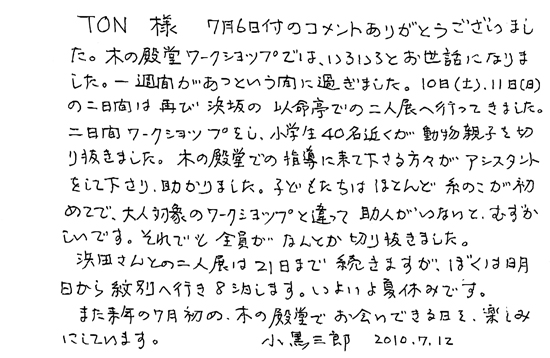 TON 様 7月6日付のコメントありがとうございまし
た。木の殿堂ワークショップでは、いろいろとお世話になりま
した。一週間があっという間に過ぎました。10日(土)、11日(日)
の二日間は再び浜坂の以命亭での二人展へ行ってきました。
二日間ワークショップをし、小学生40名近くが動物親子を切
り抜きました。木の殿堂での指導に来て下さる方々がアシスタント
をして下さり、助かりました。子どもたちはほとんど糸のこが初
めてで、大人対象のワークショップと違って助人がいないと、むずか
しいです。それでも全員がなんとか切り抜きました。
浜田さんとの二人展は21日まで続きますが、ぼくは明
日から紋別へ行き8泊します。いよいよ夏休みです。
また来年の7月初の、木の殿堂でお会いできる日を、楽しみ
にしています。 小黒三郎 2010.7.12